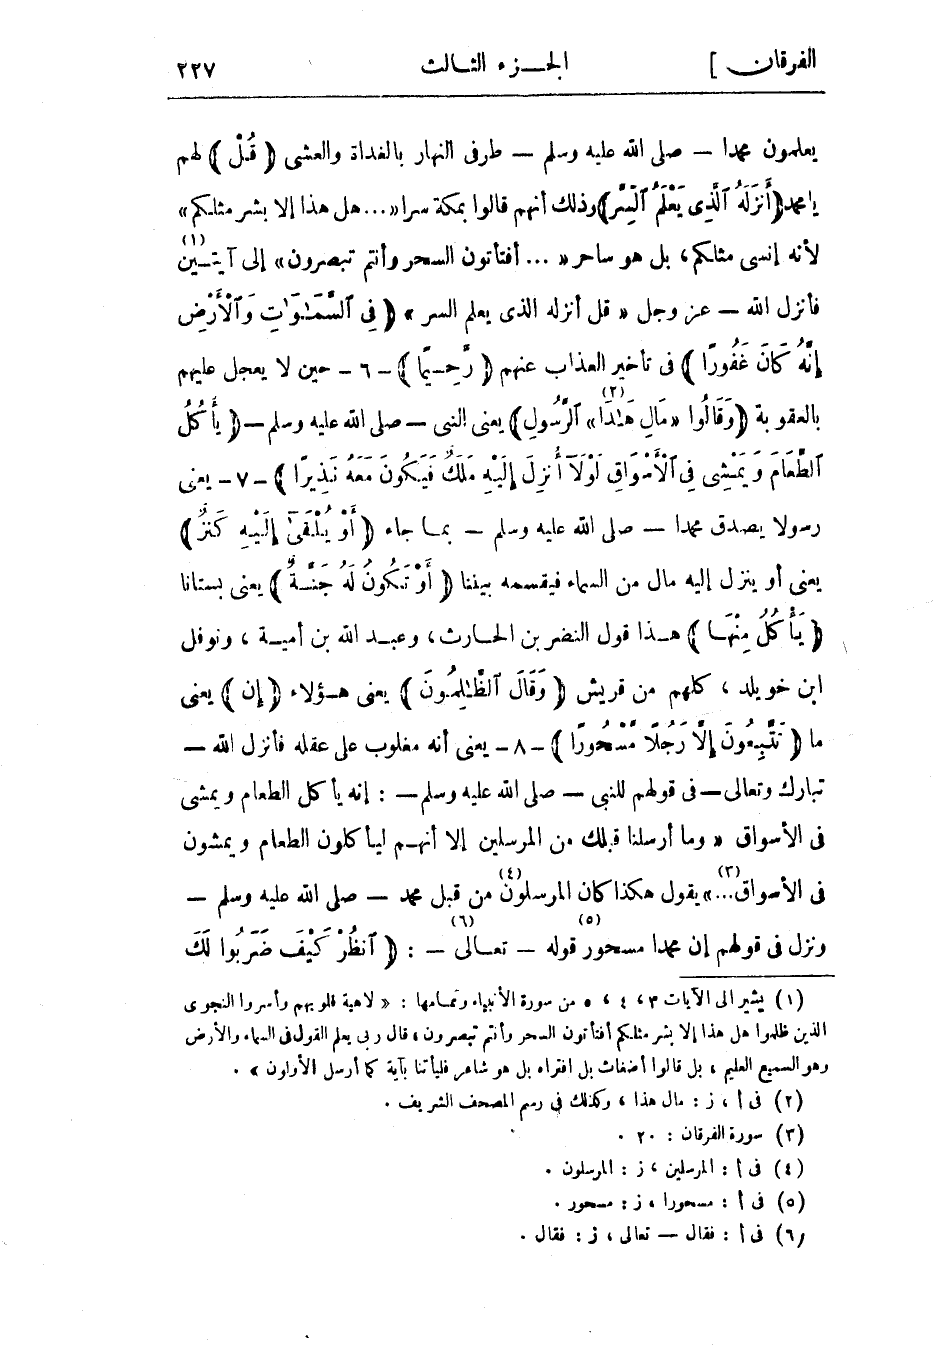 الفرقان ] الجـزء الثـالث ٢٢٧
يعلمون محمدا — صلى الله عليه وسلم — طرفى النهار بالغداة والعشى ﴿ قُلْ ﴾ لهم
يا محمد ﴿ أَنزَلَهُ ٱلَّذِى يَعْلَمُ ٱلسِّرَّ ﴾ وذلك أنهم قالوا بمكة سرا «... هل هذا إلا بشر مثلكم»
لأنه إنسى مثلكم، بل هو ساحر « ... أفتأتون السحر وأنتم تبصرون» إلى آيتـين (١)
فأنزل الله — عز وجل « قل أنزله الذى يعلم السر » ﴿ فِى ٱلسَّمَـٰوَٰتِ وَٱلْأَرْضِ
إِنَّهُ كَانَ غَفُورًا ﴾ فى تأخير العذاب عنهم ﴿ رَّحِـيمًا ﴾ - ٦ - حين لا يعجل عليهم
بالعقوبة ﴿ وَقَالُوا «مَالِ هَـٰذَا» (٢) ٱلرَّسُولِ ﴾ يعنى النبى — صلى الله عليه وسلم — ﴿ يَأْكُلُ
ٱلطَّعَامَ وَيَمْشِى فِى ٱلْأَسْوَاقِ لَوْلَآ أُنزِلَ إِلَيْهِ مَلَكٌ فَيَكُونَ مَعَهُ نَذِيرًا ﴾ - ٧ - يعنى
رسولا يصدق محمدا — صلى الله عليه وسلم — بمـا جاء ﴿ أَوْ يُلْقَىٰٓ إِلَيْـهِ كَنزٌ ﴾
يعنى أو ينزل إليه مال من السماء فيقسمه بيننا ﴿ أَوْ تَكُونُ لَهُ جَنَّـةٌ ﴾ يعنى بستانا
﴿ يَأْكُلُ مِنْهَـا ﴾ هـذا قول النضر بن الحـارث، وعبـد الله بن أميـة ، ونوفل
ابن خويلد ، كلهم من قريش ﴿ وَقَالَ ٱلظَّـٰلِمُونَ ﴾ يعنى هـؤلاء ﴿ إِن ﴾ يعنى
ما ﴿ تَتَّبِعُونَ إِلَّا رَجُلًا مَّسْحُورًا ﴾ - ٨ - يعنى أنه مغلوب على عقله فأنزل الله —
تبارك وتعالى — فى قولهم للنبى — صلى الله عليه وسلم — : إنه يأكل الطعام ويمشى
فى الأسواق « وما أرسلنا قبلك من المرسلين إلا أنهـم ليأكلون الطعام ويمشون
فى الأسواق...» (٣) يقول هكذا كان المرسلون (٤) من قبل محمد — صلى الله عليه وسلم —
ونزل فى قولهم إن محمدا مسحور (٥) قوله — تعـالى (٦) — : ﴿ ٱنظُرْ كَيْفَ ضَرَبُوا لَكَ
(١) يشير الى الآيات ٣، ٤ ، ٥ من سورة الأنبياء وتمـامها : « لاهية قلوبهم وأسروا النجوى
الذين ظلموا هل هذا إلا بشر مثلكم أفتأتون السحر وأنتم تبصرون ، قال ربى يعلم القول فى السماء والأرض
وهو السميع العليم ، بل قالوا أضغاث بل افتراه بل هو شاعر فليأتنا بآية كما أرسل الأولون » .
(٢) فى أ ، ز : مال هذا ، وكذلك فى رسم المصحف الشريف .
(٣) سورة الفرقان : ٢٠ .
(٤) فى أ : المرسلين ، ز : المرسلون .
(٥) فى أ : مسحورا ، ز : مسحور .
(٦) فى أ : فقال — تعالى ، ز : فقال .